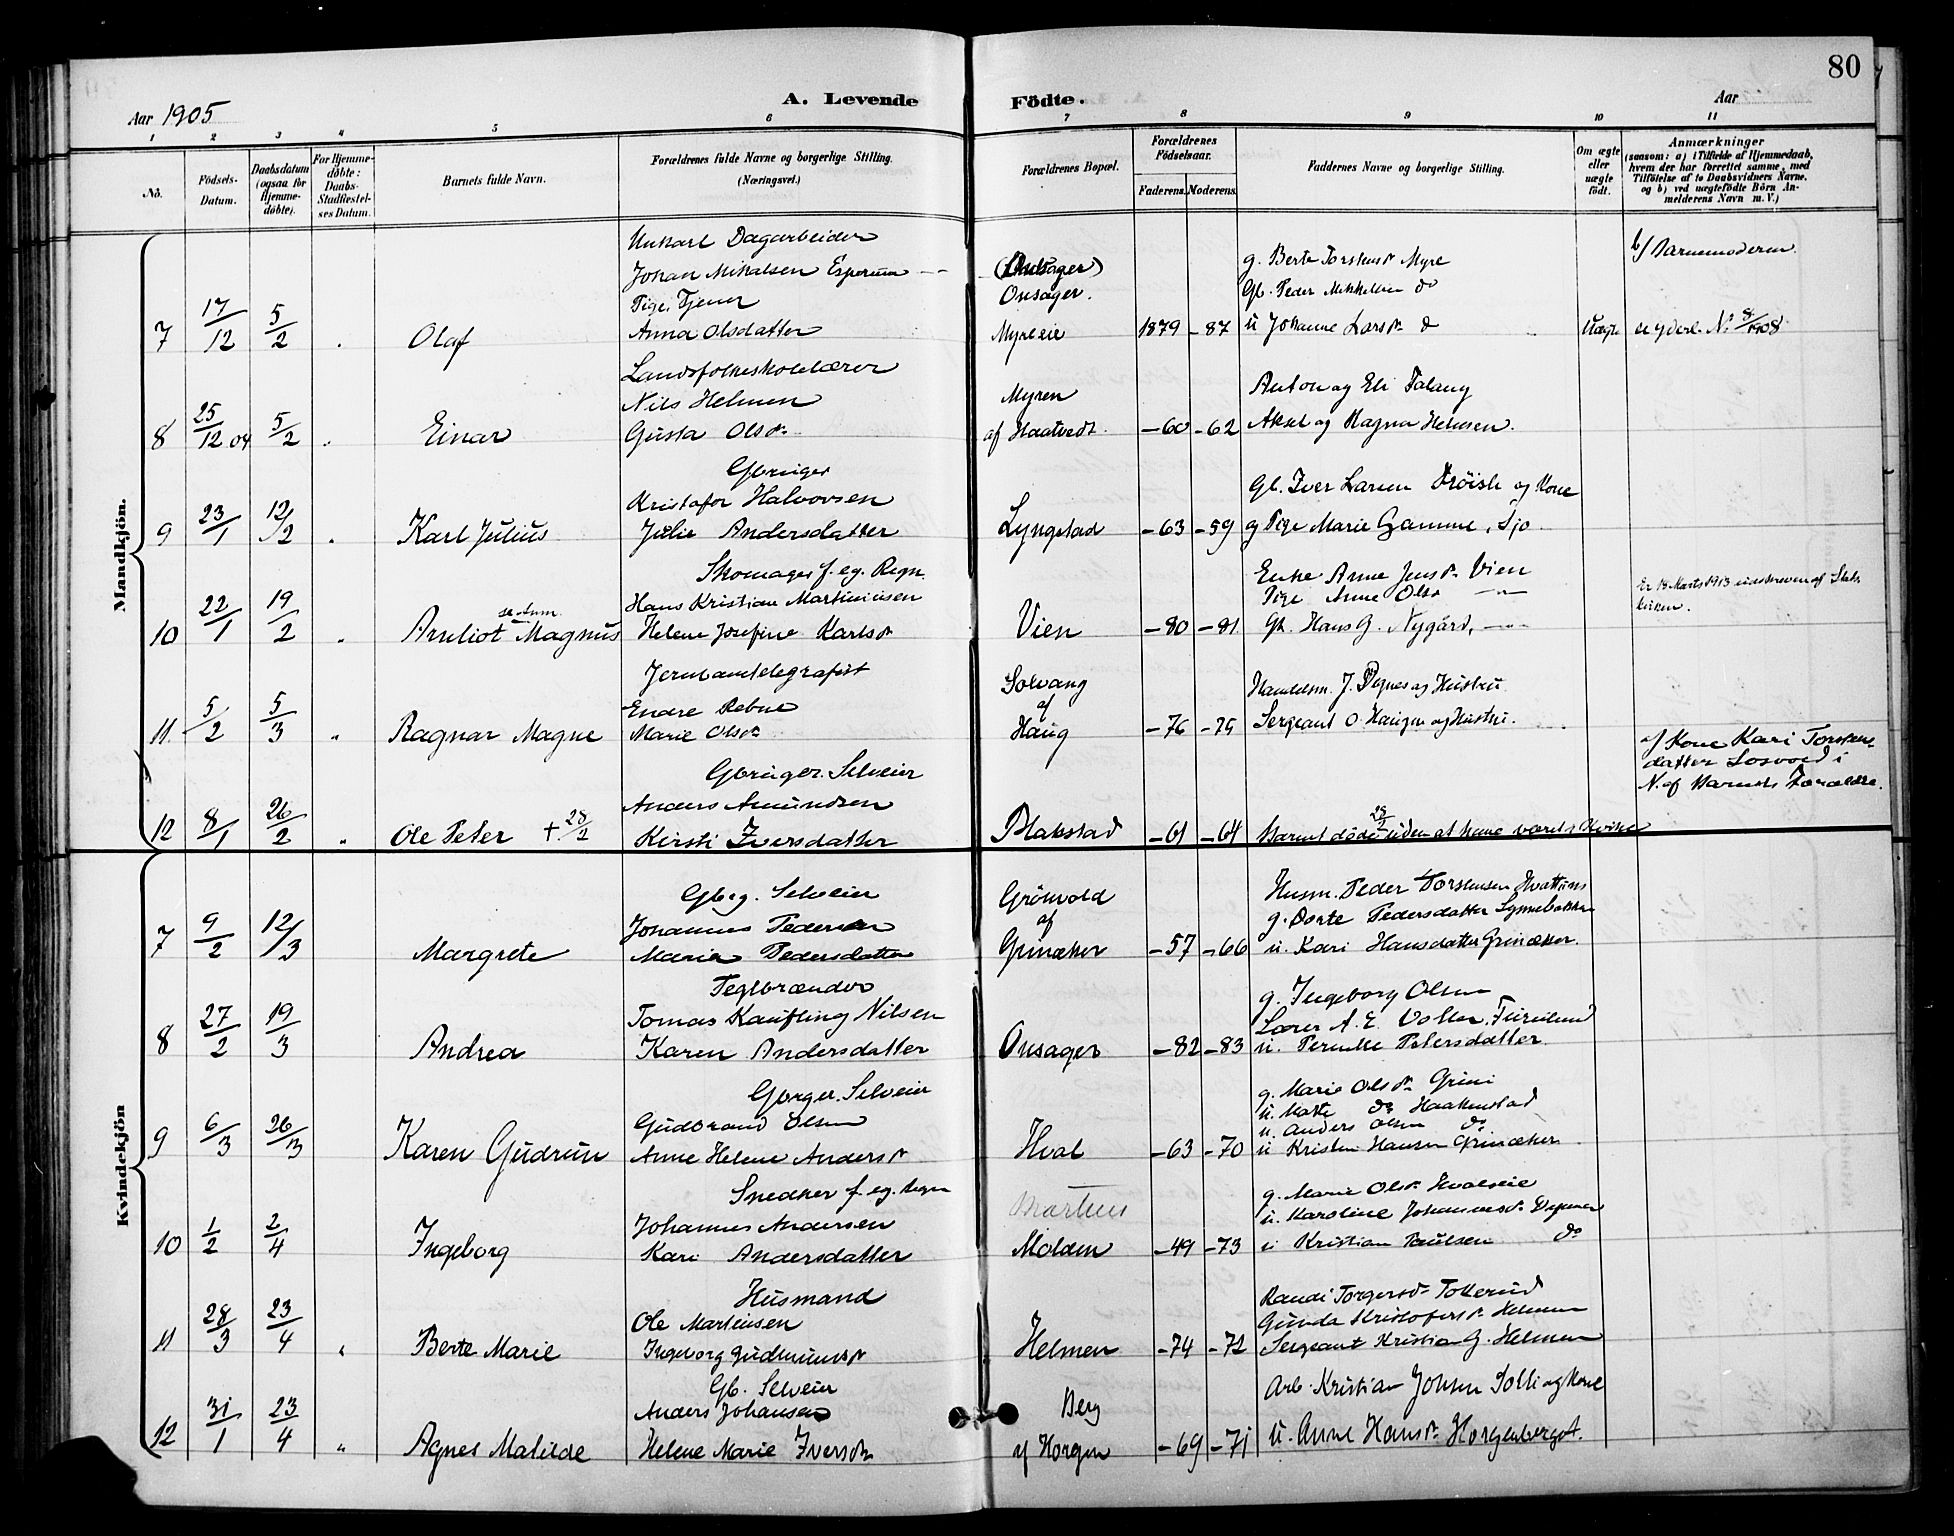 80
Aar 1905
A. Levende
Födte.
Aar
1 2 3 4 5 6 7 8 9 10 11
No.
Födsels-
Datum.
Daabsdatum
(ogsaa for
Hjemme-
döbte).
For Hjemme-
döbte:
Daabs-
Stadfæstel-
ses Datum.
Barnets fulde Navn.
Forældrenes fulde Navne og borgerlige Stilling.
(Næringsvei.)
Forældrenes Bopæl.
Forældrenes
Födselsaar.
Faderens. Moderens.
Faddernes Navne og borgerlige Stilling.
Om ægte
eller
uægte
födt.
Anmærkninger
(saasom: a) i Tilfælde af Hjemmedaab,
hvem der har forrettet samme, med
Tilföielse af to Daabsvidners Navne.
og b) ved uægtefödte Börn An-
melderens Navn m. V.)
Mandkjön.
Ungkarl Dagarbeider
Johan Mikalsen Esperum
Pige, Tjener
7 17/12 5/2 Olaf Anna Olsdatter
(Onsager)
Onsager.
Myreeie 1879 -87
g. Berte Torstensd. Myre
Gb. Peder Mikkelsen do
u Johanne Larsd. d Uægte
b/ Barnemoderen
Landsfolkeskolelærer
Nils Helmen
8 25/12 04 5/2 Einar Gusta Olsd.
Myren
af Haatvedt. -60 -62
Anton og Eli Falang
Aksel og Magna Helmen.
Gbruger
Kristofer Halvorsen
9 23/1 12/2 Karl Julius Julie Andersdatter
Lyngstad -63 -59
Gb. Iver Larsen Dröisli og Kone
g Pige Marie Gamme, Sjo
Skomager f. eg. Regn.
Hans Kristian Martiniusen
10 22/1 19/2 Arnliot Magnus Helene Josefine Karlsd.
se Anm.
Vien -80 -81
Enke Anne Jensd. Vien
Pige Anne Olsd
Gb. Hans G. Nygård,
Er 18 Marts 1913 udskreven af Stats
kirken.
Jernbanetelegrafist
Endre Rebne
11. 5/2 5/3 " Ragnar Magne Marie Olsd.
Solvang
af
Haug -76 -75
Handelsm. J. Pynes og Hustru
Sergeant O. Haugen og Hustru.
Gbruger. Selveier
Anders Amundsen
12 8/1 26/2 " Ole Peter + 28/2 Kirsti Iversdatter
Blakstad -61 -64
Barnet döde 28/2 uden at have været i Kirke
a/ Kone Kari Torstens
datter Sosvold i
N. af Barnets Forældre.
Kvindekjön
Gbrg. Selveier
Johannes Pedersen
7 9/2 12/3 Margrete Marie Pedersdatter
Grönvold
af
Grinaker -57 -66
Husm. Peder Torstensen Hvattum
g. Dorte Pedersdatter Lynnebakken
u. Kari Hansdatter Grinaker.
Teglbrænder
Tomas Kaufling Nilsen
8 27/2 19/3 Andrea Karen Andersdatter
Onsager -82 -83
g. Ingeborg Olsen
Lærer A. E. Voller, Furulund
u. Pernille Petersdatter
Gbrger. Selveier
Gudbrand Olsen
9 6/3 26/3 Karen Gudrun Anne Helene Andersd.
Hval -63 -70
g. Marie Olsd. Grini
u. Marte do Haakenstad
u. Anders Olsen do
u Kristen Hansen Grinaker
Snedker f. eg. Regn
Johannes Andersen
10 1/2 2/4 Ingeborg Kari Andersdatter
Molden -49 -73
g. Marie Olsd. Hvalseie
u. Karoline Johannesd.
u Kristian Paulsen do
Husmand
Ole Martinsen
11 28/3 23/4 " Berte Marie Ingeborg Gudmundsd.
Helmen -74 -72
Randi Torgersd. Tokerud
Gunda Kristofersd. Helmen
Sergeant Kristian G. Helmen
Gb. Selveier
Anders Johansen
12 31/1 23/4 " Agnes Matilde Helene Marie Iversd.
Berg
af Horgen -69 -71
Arb. Kristian Johsen Solli og Kone
u. Anne Hansd. Horgenberget.